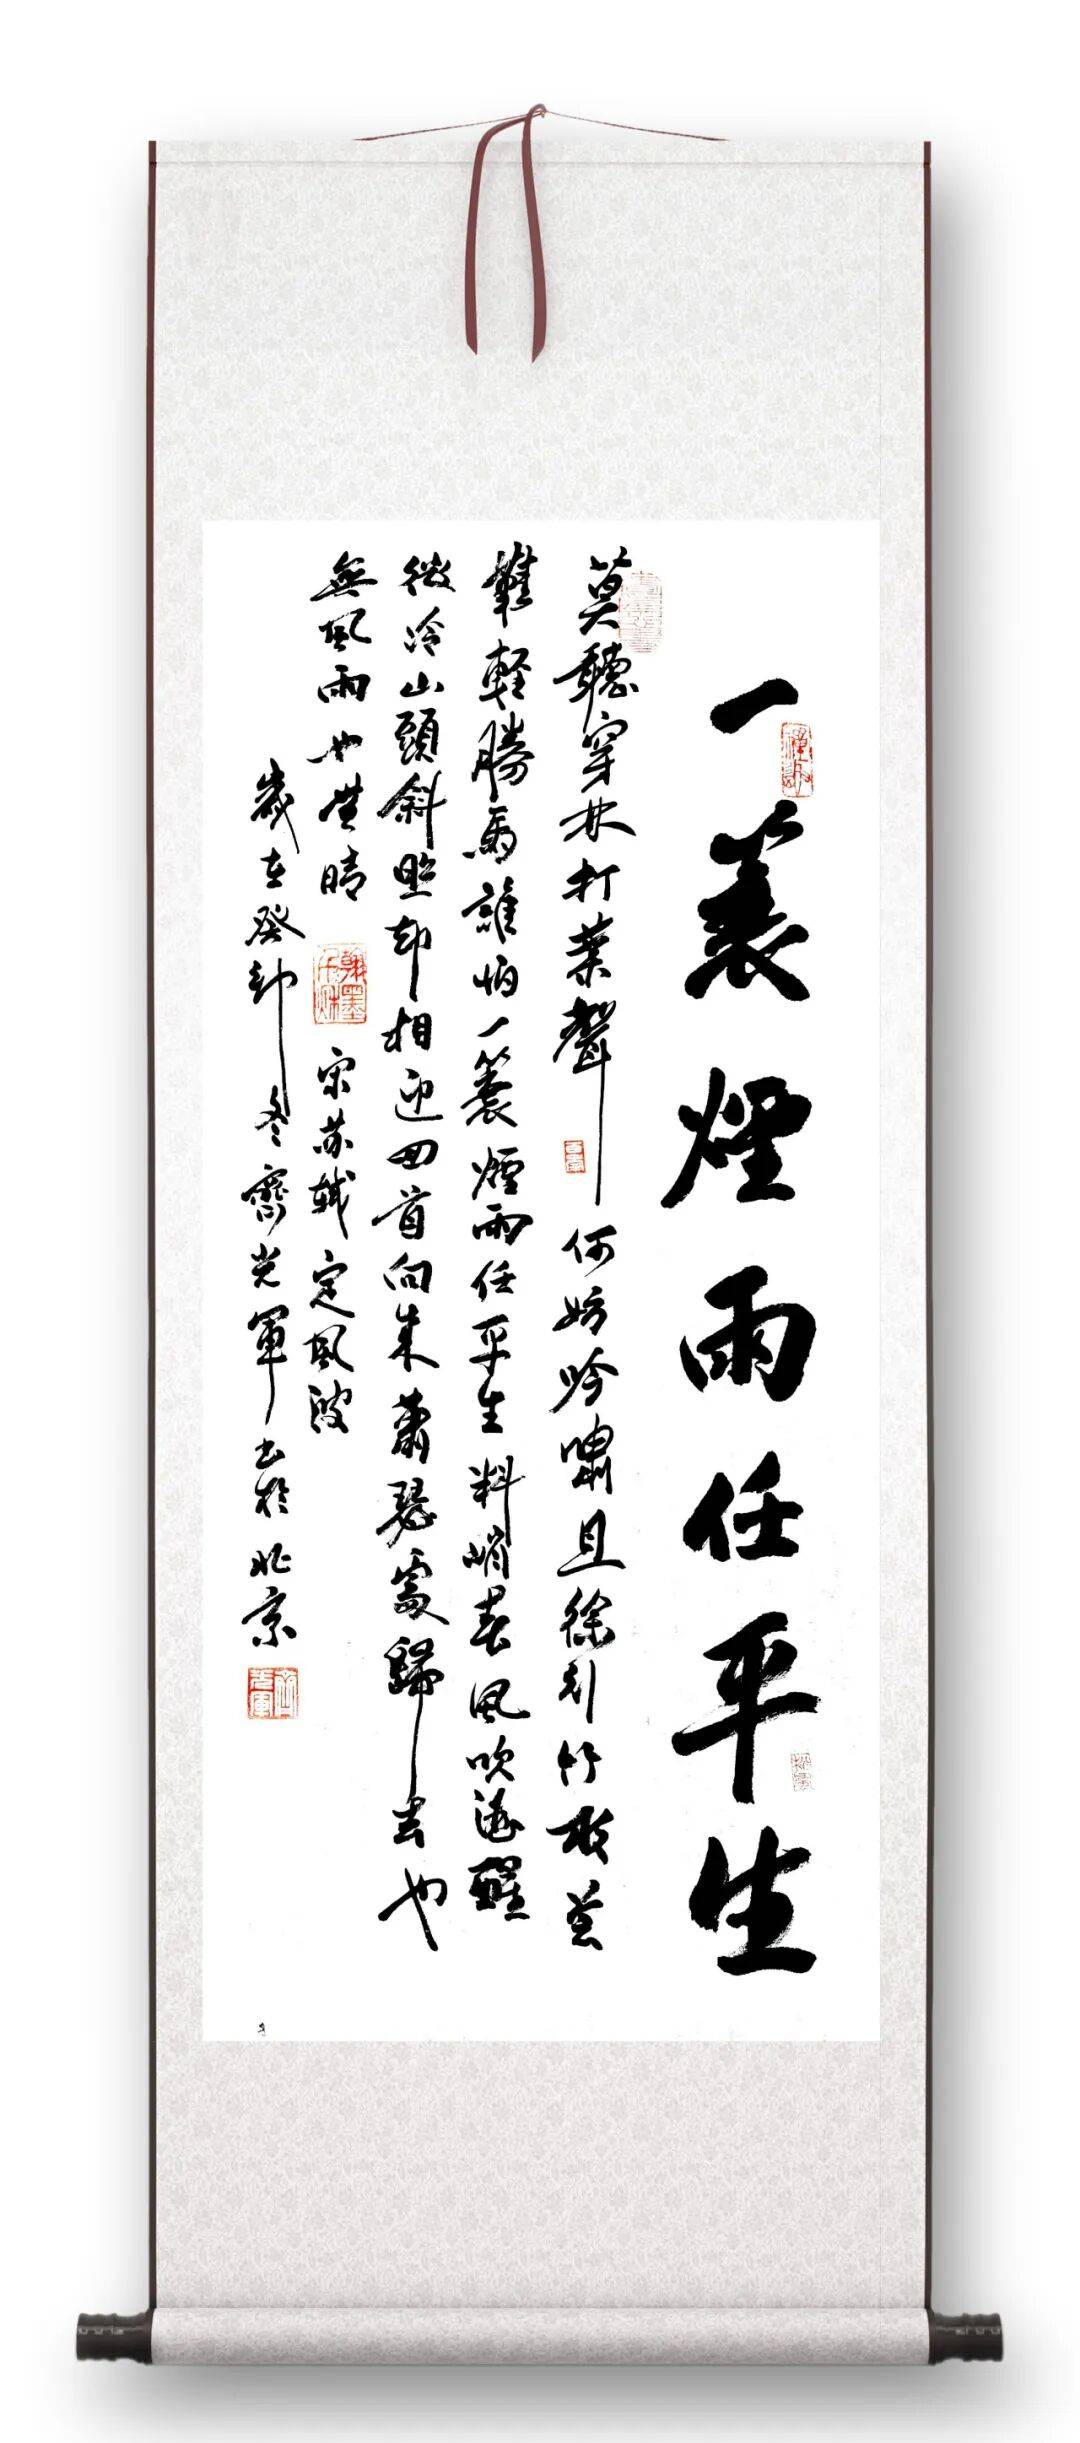 一蓑煙雨任平生
莫聽穿林打葉聲何妨吟嘯且徐行竹杖芒
鞋輕勝馬誰怕一蓑煙雨任平生料峭春風吹酒醒
微冷山頭斜照却相迎回首向来蕭瑟處歸去也
無風雨也無晴
翰墨千秋
宋苏軾定風波
歲在癸卯冬齊光軍书於北京